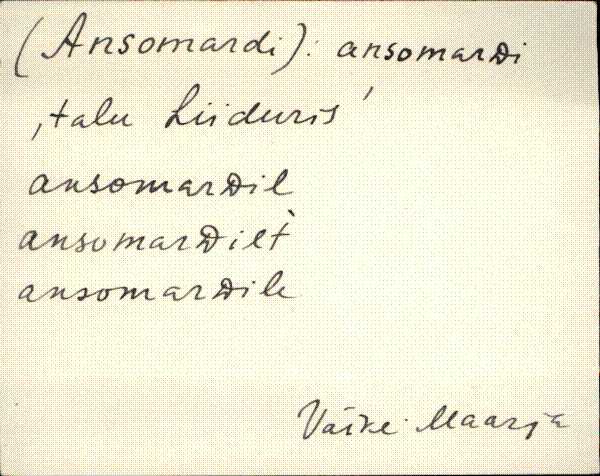 (Ansomardi): ansomarᴅi
‚talu Liiduris’
ansomarᴅil
ansomarᴅilt̀
ansomarᴅile
Väike-Maarja